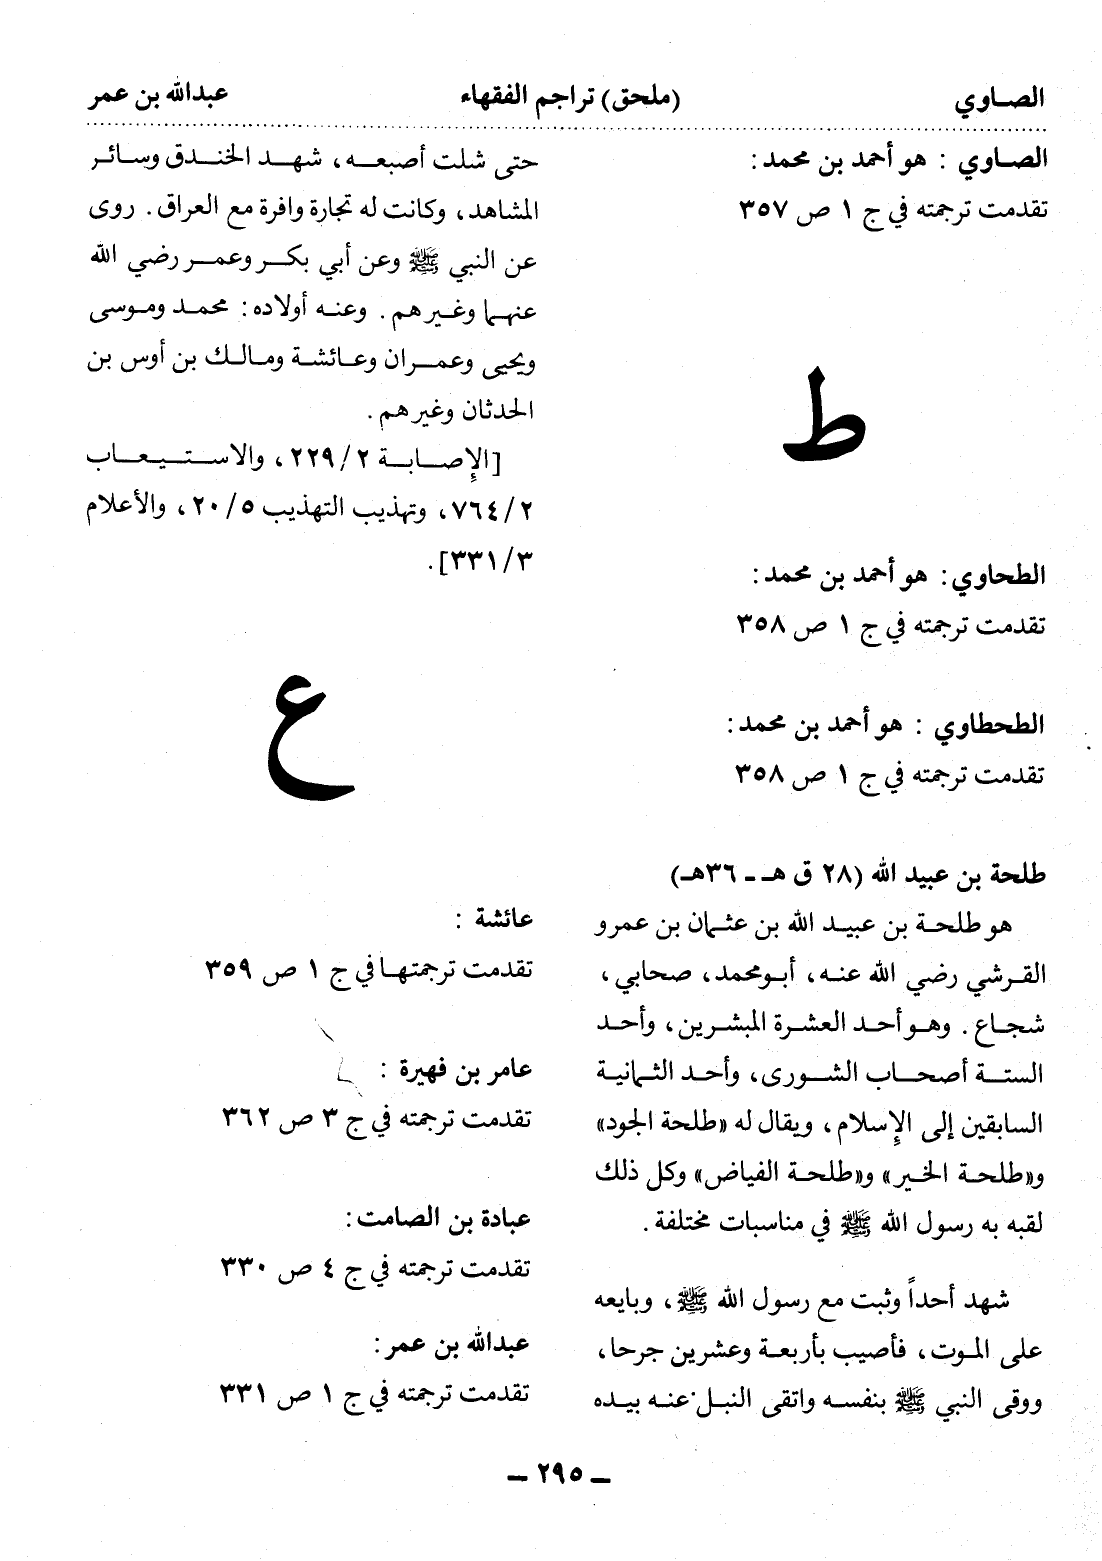 الصاوي
(ملحق) تراجم الفقهاء
عبدالله بن عمر
الصاوي : هو أحمد بن محمد :
تقدمت ترجمته في ج ١ ص ٣٥٧
ط
الطحاوي : هو أحمد بن محمد :
تقدمت ترجمته في ج ١ ص ٣٥٨
الطحطاوي : هو أحمد بن محمد :
تقدمت ترجمته في ج ١ ص ٣٥٨
طلحة بن عبيد الله (٢٨ ق هـ ـ ٣٦هـ)
هو طلحة بن عبيد الله بن عثمان بن عمرو
القرشي رضي الله عنه، أبو محمد، صحابي،
شجاع . وهو أحد العشرة المبشرين، وأحد
الستة أصحاب الشورى، وأحد الثمانية
السابقين إلى الإسلام، ويقال له «طلحة الجود»
و«طلحة الخير» و«طلحة الفياض» وكل ذلك
لقبه به رسول الله ﷺ في مناسبات مختلفة .
شهد أحداً وثبت مع رسول الله ﷺ، وبايعه
على الموت، فأصيب بأربعة وعشرين جرحا،
ووقى النبي ﷺ بنفسه واتقى النبل عنه بيده
حتى شلت أصبعه، شهد الخندق وسائر
المشاهد، وكانت له تجارة وافرة مع العراق . روى
عن النبي ﷺ وعن أبي بكر وعمر رضي الله
عنهما وغيرهم . وعنه أولاده : محمد وموسى
ويحيى وعمران وعائشة ومالك بن أوس بن
الحدثان وغيرهم .
[الإصابة ٢٢٩/٢، والاستيعاب
٧٦٤/٢، وتهذيب التهذيب ٢٠/٥، والأعلام
٣٣١/٣] .
ع
عائشة :
تقدمت ترجمتها في ج ١ ص ٣٥٩
عامر بن فهيرة :
تقدمت ترجمته في ج ٣ ص ٣٦٢
عبادة بن الصامت :
تقدمت ترجمته في ج ٤ ص ٣٣٠
عبدالله بن عمر :
تقدمت ترجمته في ج ١ ص ٣٣١
ـ ٢٩٥ ـ